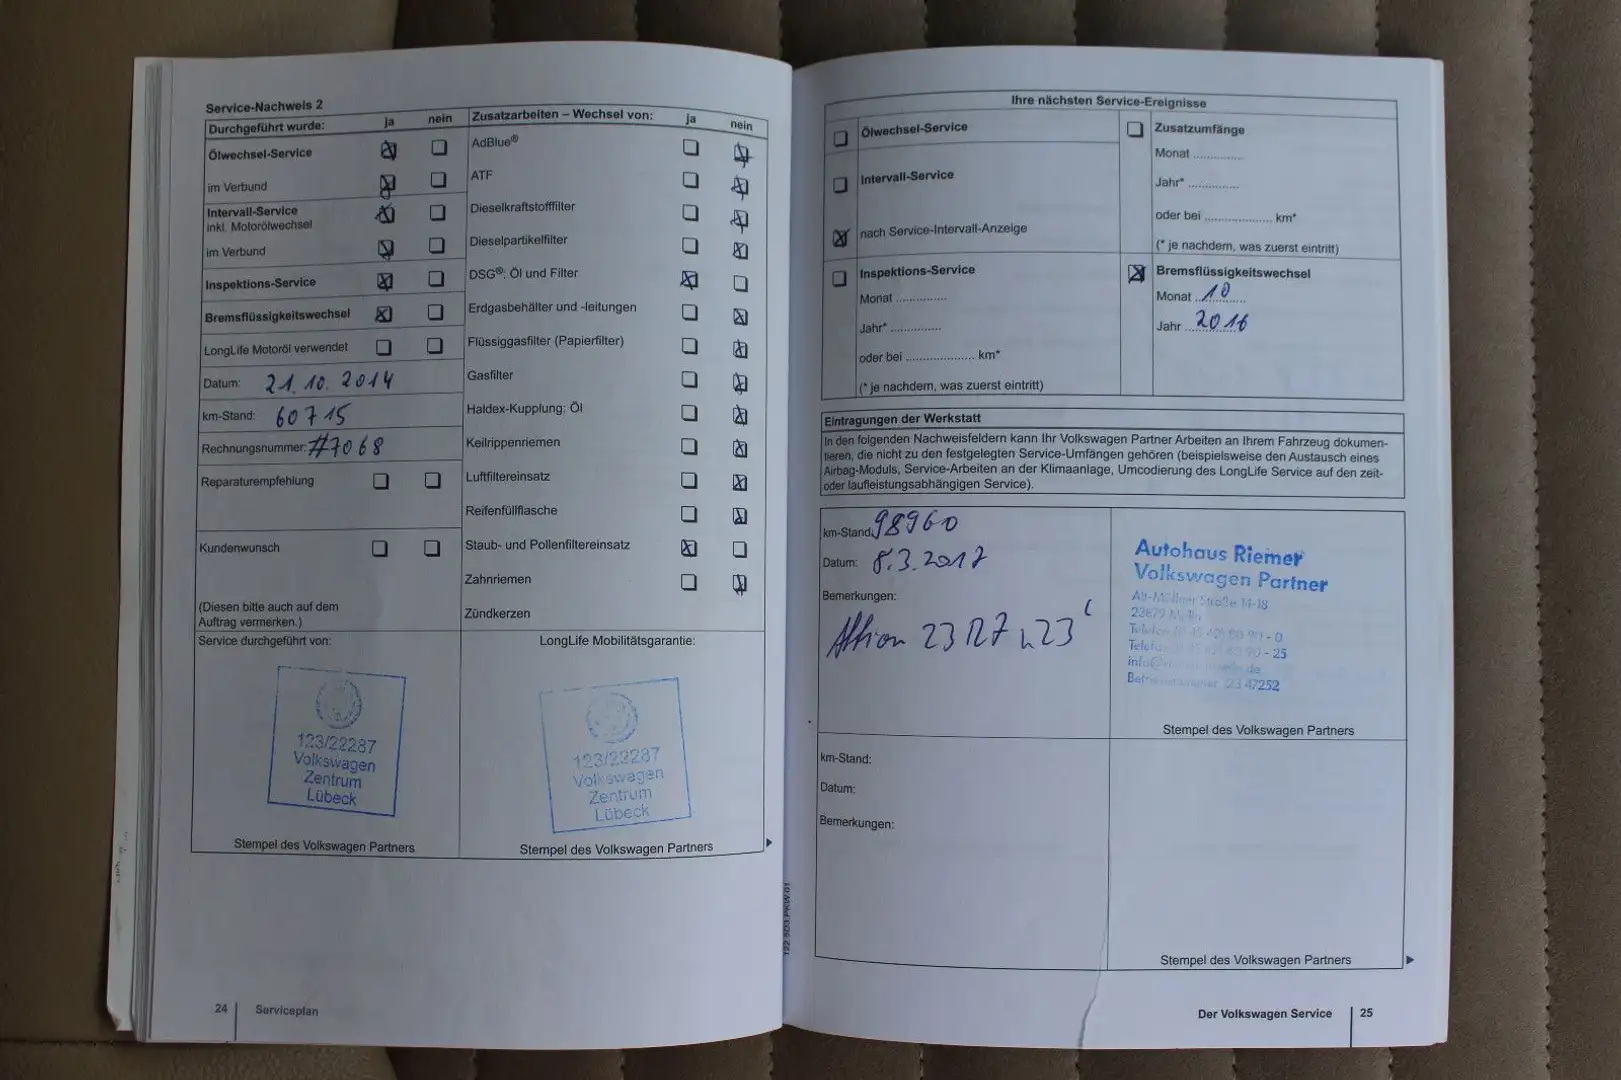 Service-Nachweis 2
Durchgeführt wurde: ja nein
Ölwechsel-Service
im Verbund
Intervall-Service
inkl. Motorölwechsel
im Verbund
Inspektions-Service
Bremsflüssigkeitswechsel
LongLife Motoröl verwendet
Datum: 21.10.2014
km-Stand: 60715
Rechnungsnummer: #7068
Reparaturempfehlung
Kundenwunsch
(Diesen bitte auch auf dem
Auftrag vermerken.)
Zusatzarbeiten – Wechsel von: ja nein
AdBlue®
ATF
Dieselkraftstofffilter
Dieselpartikelfilter
DSG®: Öl und Filter
Erdgasbehälter und -leitungen
Flüssiggasfilter (Papierfilter)
Gasfilter
Haldex-Kupplung: Öl
Keilrippenriemen
Luftfiltereinsatz
Reifenfüllflasche
Staub- und Pollenfiltereinsatz
Zahnriemen
Zündkerzen
Service durchgeführt von:
123/22287
Volkswagen
Zentrum
Lübeck
Stempel des Volkswagen Partners
LongLife Mobilitätsgarantie:
123/22287
Volkswagen
Zentrum
Lübeck
Stempel des Volkswagen Partners
24 Serviceplan
122.5D3.PKW.01
Ihre nächsten Service-Ereignisse
Ölwechsel-Service
Intervall-Service
nach Service-Intervall-Anzeige
Inspektions-Service
Monat ...............
Jahr* ...............
oder bei .................... km*
(* je nachdem, was zuerst eintritt)
Zusatzumfänge
Monat ...............
Jahr* ...............
oder bei .................... km*
(* je nachdem, was zuerst eintritt)
Bremsflüssigkeitswechsel
Monat 10
Jahr 2016
Eintragungen der Werkstatt
In den folgenden Nachweisfeldern kann Ihr Volkswagen Partner Arbeiten an Ihrem Fahrzeug dokumen-
tieren, die nicht zu den festgelegten Service-Umfängen gehören (beispielsweise den Austausch eines
Airbag-Moduls, Service-Arbeiten an der Klimaanlage, Umcodierung des LongLife Service auf den zeit-
oder laufleistungsabhängigen Service).
km-Stand: 98960
Datum: 8.3.2017
Bemerkungen:
Aktion 23R7
Autohaus Riemer
Volkswagen Partner
Alt-Möllner Straße 14-18
23879 Mölln
Stempel des Volkswagen Partners
km-Stand:
Datum:
Bemerkungen:
Stempel des Volkswagen Partners
Der Volkswagen Service 25